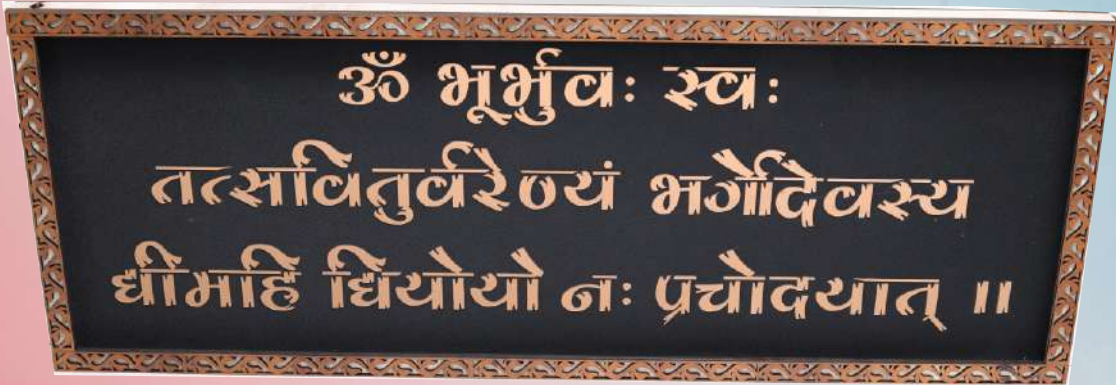 ॐ भूर्भुवः स्वः
तत्सवितुर्वरेण्यं भर्गोदेवस्य
धीमहि धियोयो नः प्रचोदयात् ॥